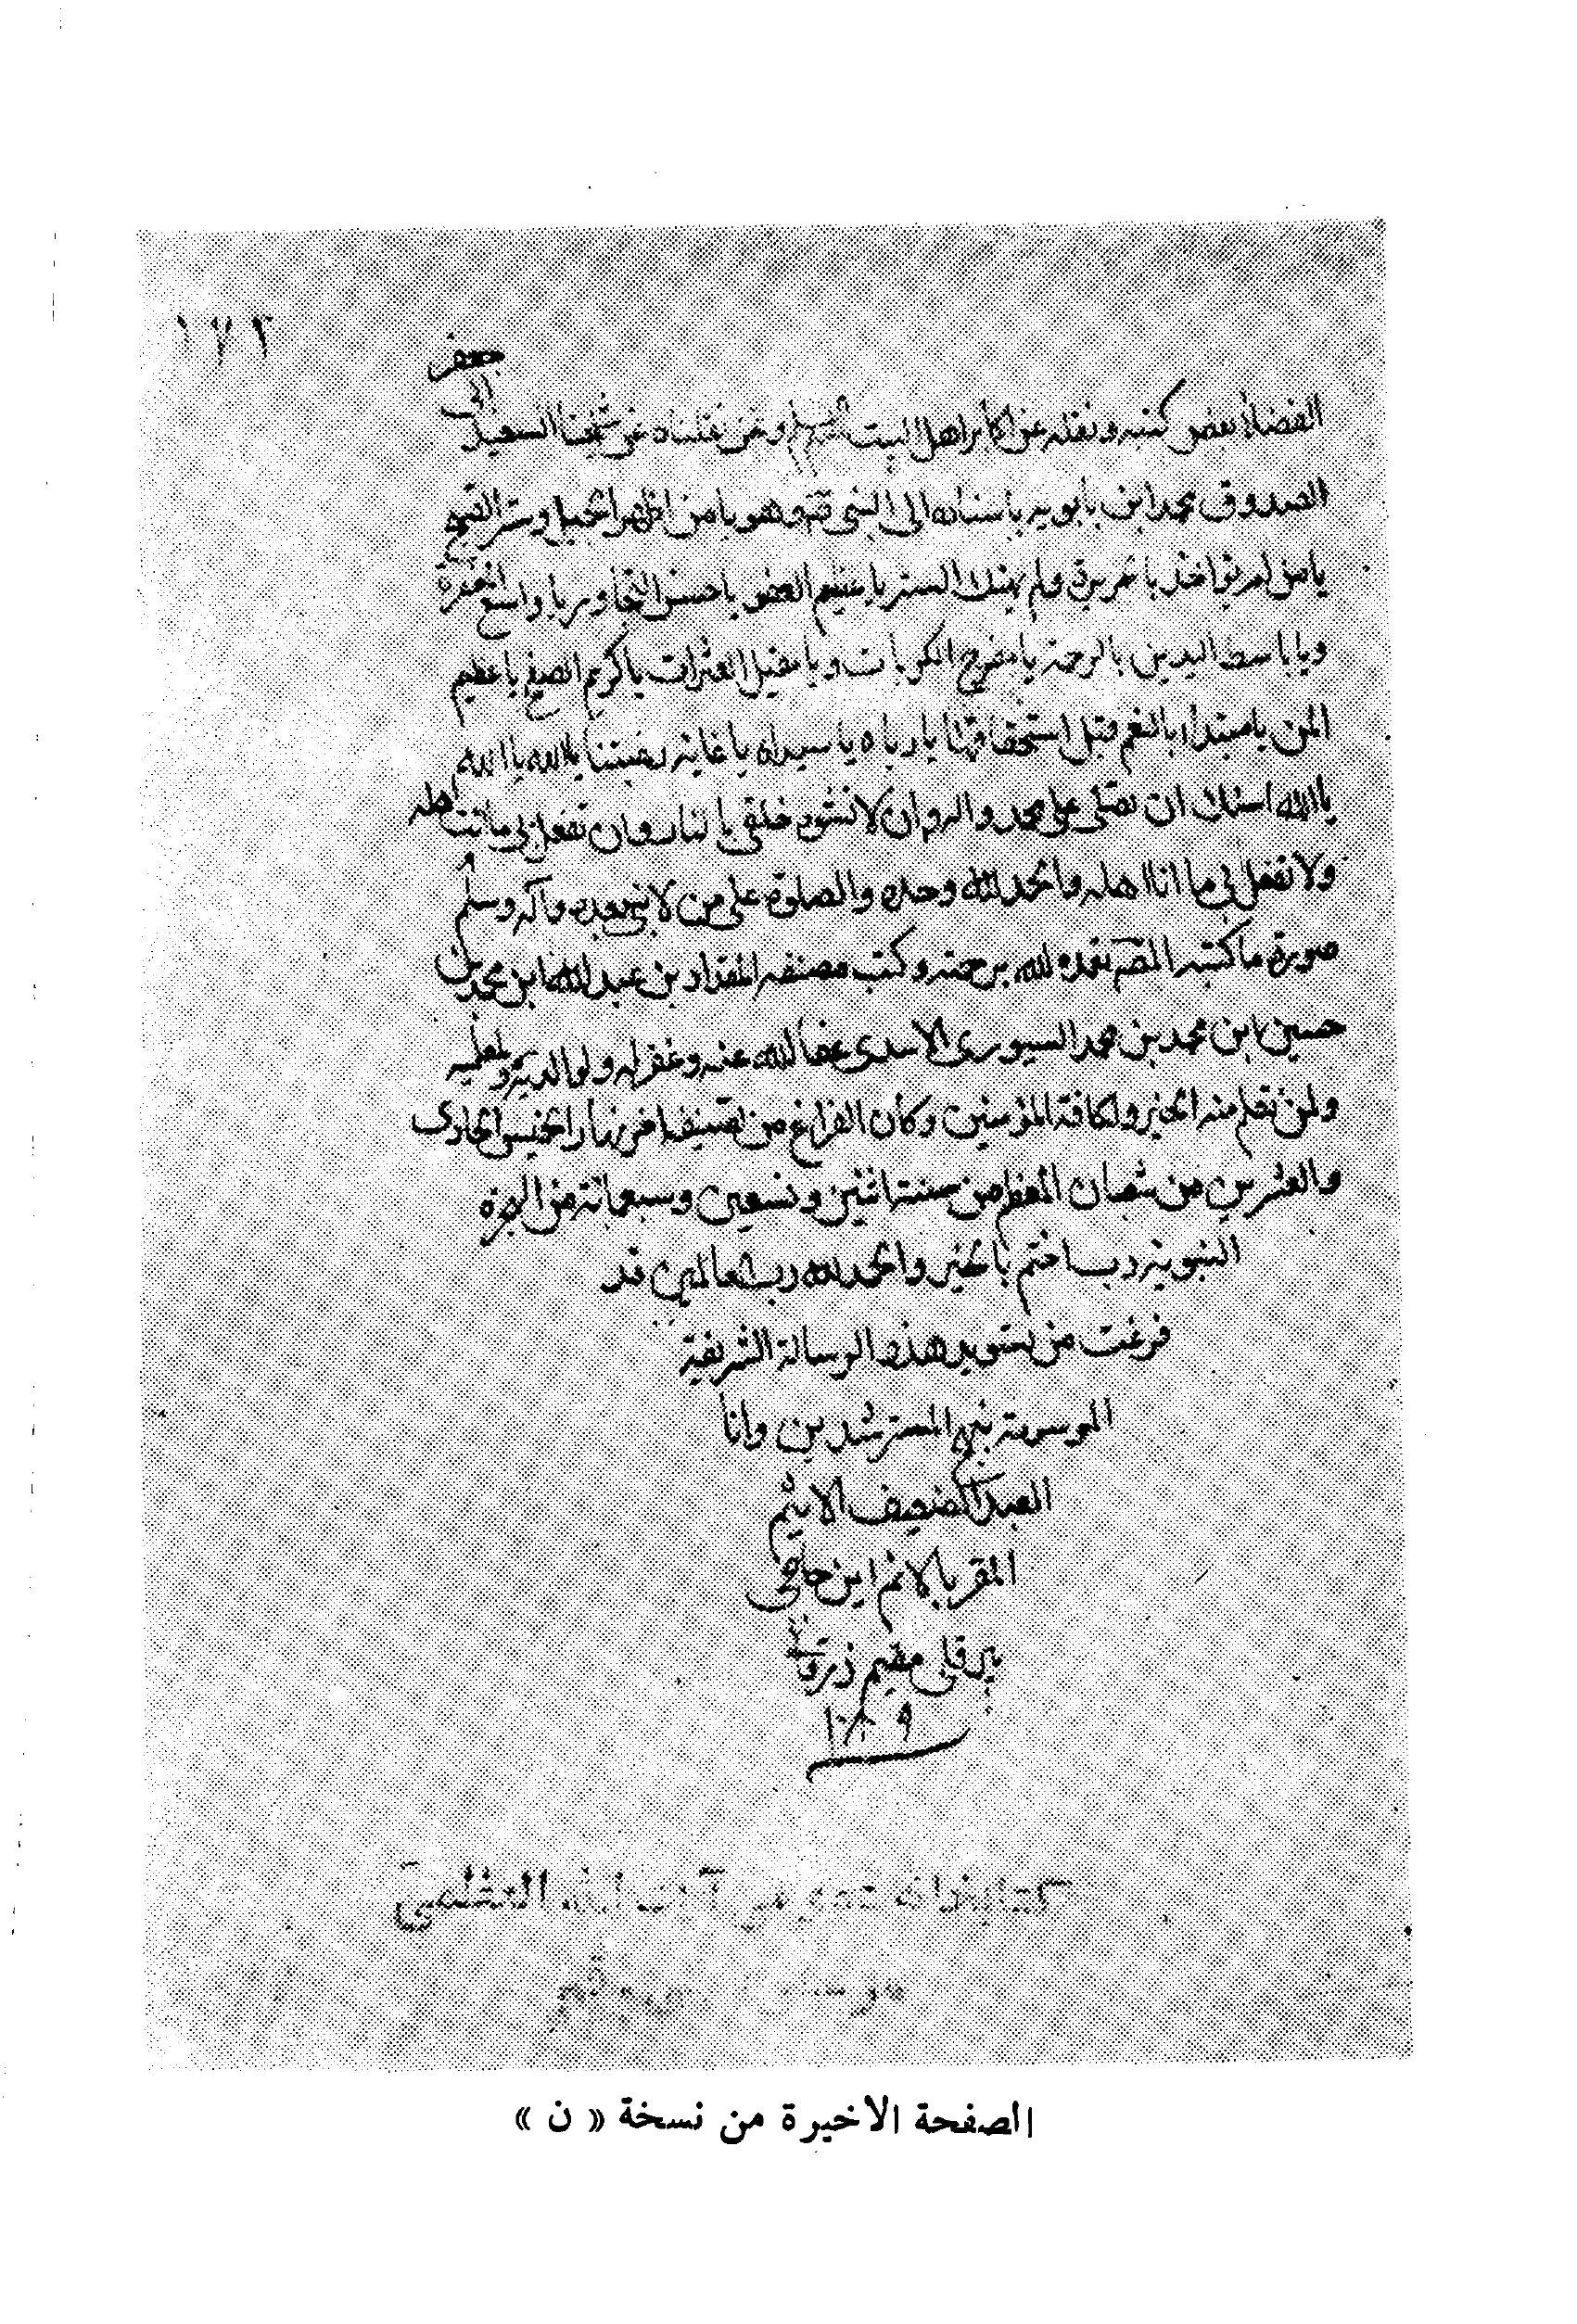 ١٧٢
جعفر
الفضلاء بعض كتبه ونقله عن اكابر اهل البيت ونحن نقلناه عن شيخنا السعيد ابي
الصدوق محمد ابن بابويه باسناده الى النبي وهو يا من اظهر الجميل وستر القبيح
يا من لم يؤاخذ بالجريرة ولم يهتك الستر يا عظيم العفو يا حسن التجاوز يا واسع المغفرة
ويا باسط اليدين بالرحمة يا مفرج الكربات ويا مقيل العثرات يا كريم الصفح يا عظيم
المن يا مبتدأ بالنعم قبل استحقاقها يا رباه يا سيداه يا غاية رغبتنا يا الله يا الله
يا الله اسئلك ان تصلى على محمد واله وان لا تشوه خلقى بالنار وان تفعل بى ما انت اهله
ولا تفعل بى ما انا اهله والحمد لله وحده والصلوة على من لا نبي بعده وآله وسلم
صورة ما كتبه المصنف تغمده الله برحمته وكتب مصنفه المقداد بن عبد الله ابن محمد بن
حسين ابن محمد بن محمد السيورى الاسدى عفا الله عنه وغفر له ولوالديه
ولمن تعلم منه الخير ولكافة المؤمنين وكان الفراغ من تصنيفها اخر نهار الخميس الحادى
والعشرين من شعبان المعظم من سنة اثنين وتسعين وسبعمائة من الهجرة
النبوية رب اختم بالخير والحمد لله رب العالمين قد
فرغت من تسويد هذه الرسالة الشريفة
الموسومة بنهج المسترشدين وانا
العبد الضعيف الاثيم
المقر بالاثم ابن حاجى
مقيم
١٠٨٩
كتابخانه عمومى آيت الله العظمى
قم
الصفحة الاخيرة من نسخة « ن »